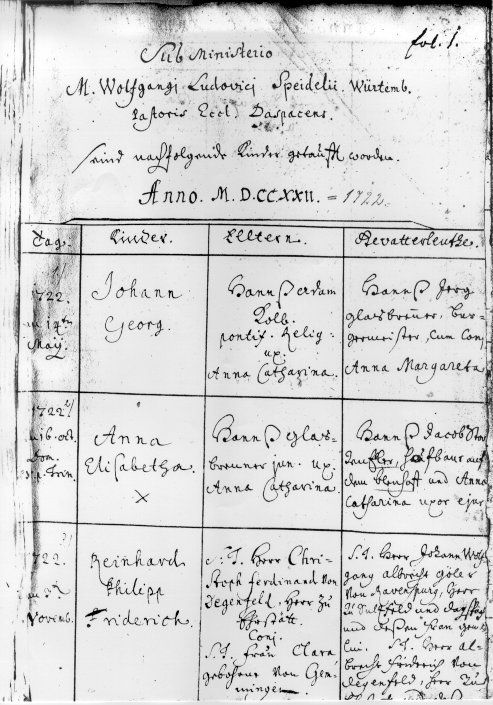 fol. 1.
Sub Ministerio
M. Wolfgangi Ludovici Speidelii Würtemb.
Pastoris Eccl. Daspacens.
sind nachfolgende Kinder getaufft worden.
Anno. M.D.CCXXII. = 1722.
Tag. Kinder. Elltern. Gevatterleuthe.
1722. Johann Georg.
14ten May.
Hannß Adam
Kolb.
pontif. Relig.
ux.
Anna Catharina.
Hannß Jerg
Glasbrenner, bur-
germeister, cum Conj.
Anna Margareta
1722
16. oct.
Dom.
Trin.
Anna
Elisabetha
x
Hannß Glas-
brenner jun. ux.
Anna Catharina.
Hannß Jacob
und Anna
Catharina uxor ejus
1722.
Novemb.
Reinhard
Philipp
Friderich.
S. T. Herr Chri-
stoph Ferdinand Von
Degenfeld, Herr zu
Conj.
S. T. Frau Clara
gebohrne Von Gem-
mingen
S. T. Herr Johann Wolf-
gang albrecht Göler
Von Ravenspurg, Herr
zu Sultzfeld und
S. T. Herr al-
brecht Friderich Von
Degenfeld, Herr zu